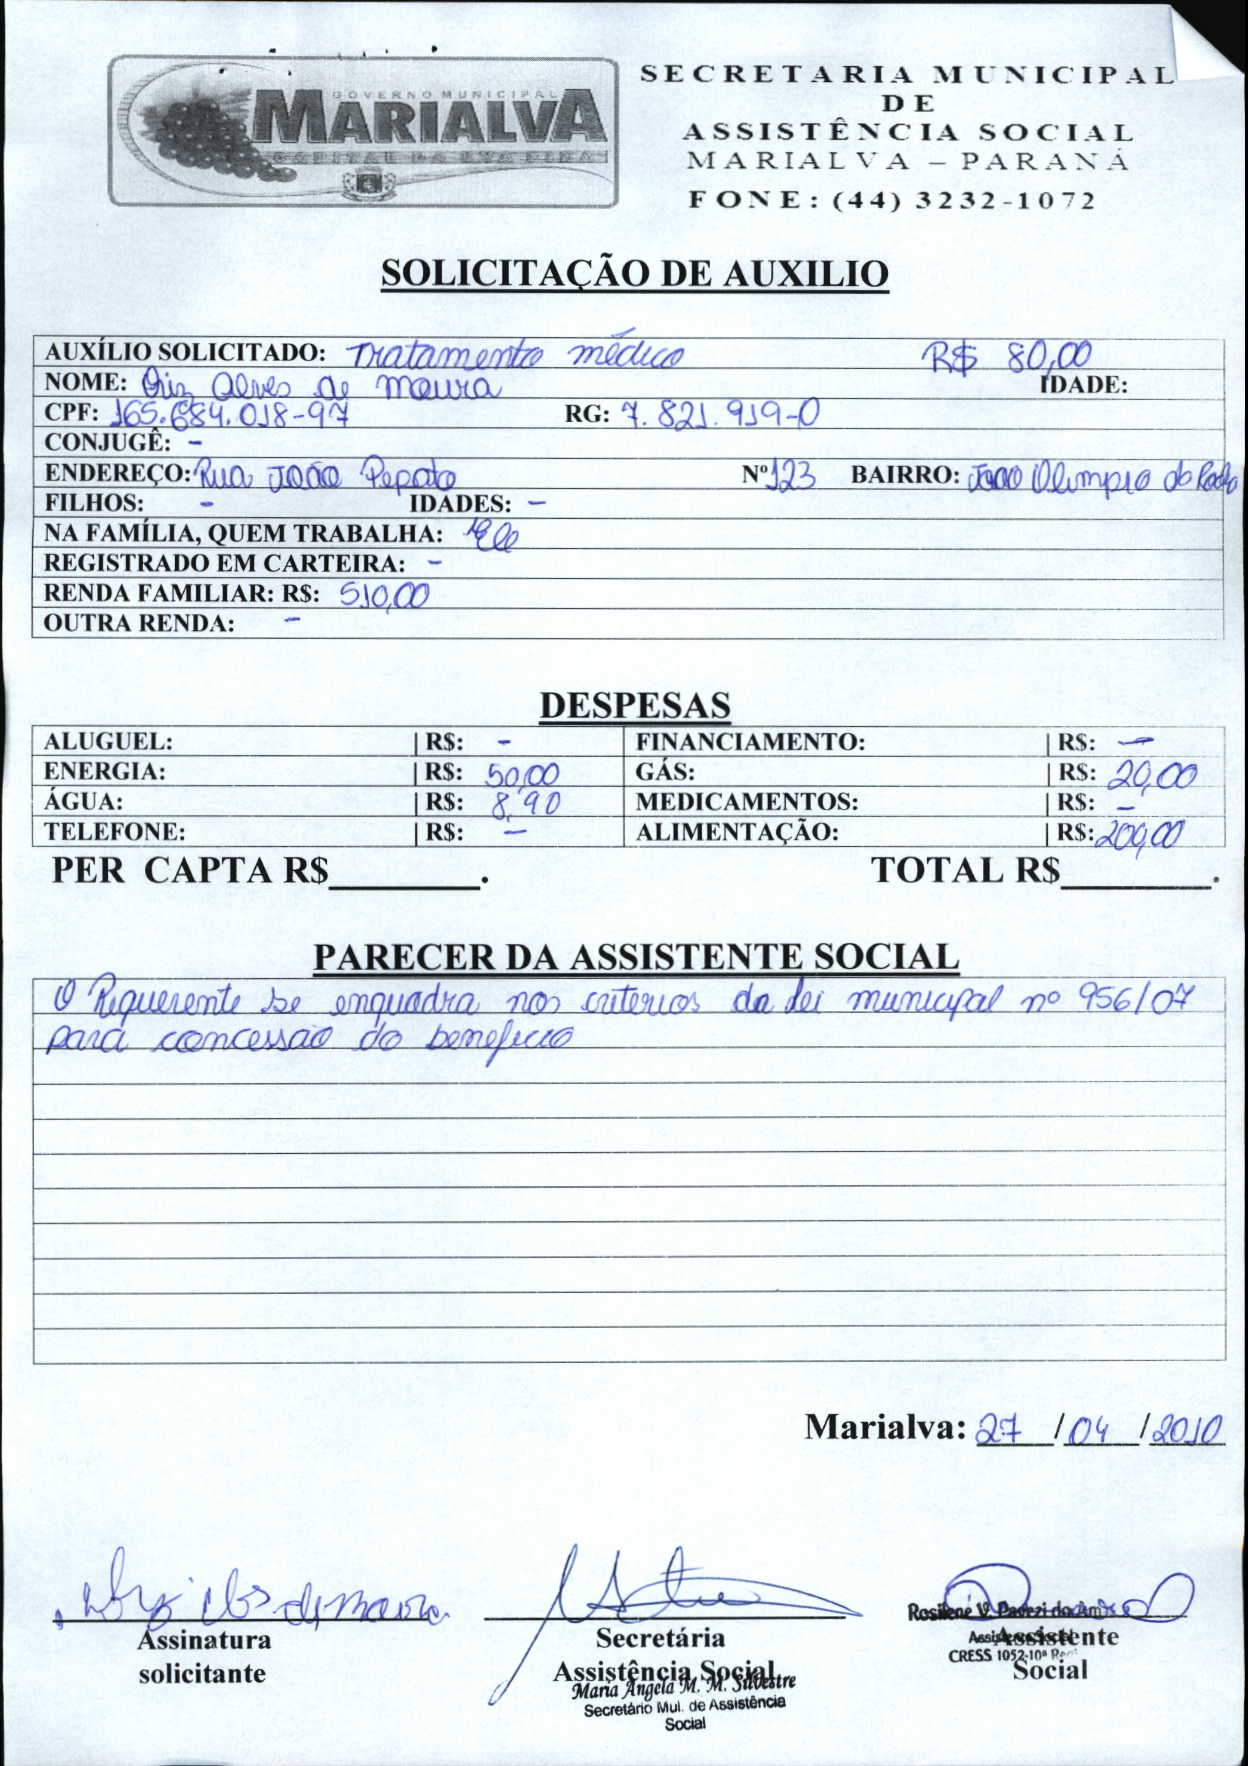 GOVERNO MUNICIPAL
MARIALVA
CAPITAL DA UVA FINA
SECRETARIA MUNICIPAL
DE
ASSISTÊNCIA SOCIAL
MARIALVA – PARANÁ
FONE: (44) 3232-1072
SOLICITAÇÃO DE AUXILIO
AUXÍLIO SOLICITADO: Tratamento médico R$ 80,00
NOME: Alves de Moura IDADE:
CPF: 165.684.018-97 RG: 7.821.919-0
CONJUGÊ: -
ENDEREÇO: Rua João Pepato Nº 123 BAIRRO: João Olimpio do Rocha
FILHOS: - IDADES: -
NA FAMÍLIA, QUEM TRABALHA: Ele
REGISTRADO EM CARTEIRA: -
RENDA FAMILIAR: R$: 510,00
OUTRA RENDA: -
DESPESAS
ALUGUEL: | R$: - FINANCIAMENTO: | R$: -
ENERGIA: | R$: 50,00 GÁS: | R$: 20,00
ÁGUA: | R$: 8,90 MEDICAMENTOS: | R$: -
TELEFONE: | R$: - ALIMENTAÇÃO: | R$: 200,00
PER CAPTA R$________. TOTAL R$________.
PARECER DA ASSISTENTE SOCIAL
O Requerente se enquadra nos criterios da lei municipal nº 956/07
para concessão do beneficio
Marialva: 27 /04 /2010
Assinatura
solicitante
Secretária
Assistência Social
Maria Ângela M. M. Silvestre
Secretário Mul. de Assistência
Social
Rosilene V. Pavezi do
Assistente Social
CRESS 1052-10ª
Assistente
Social